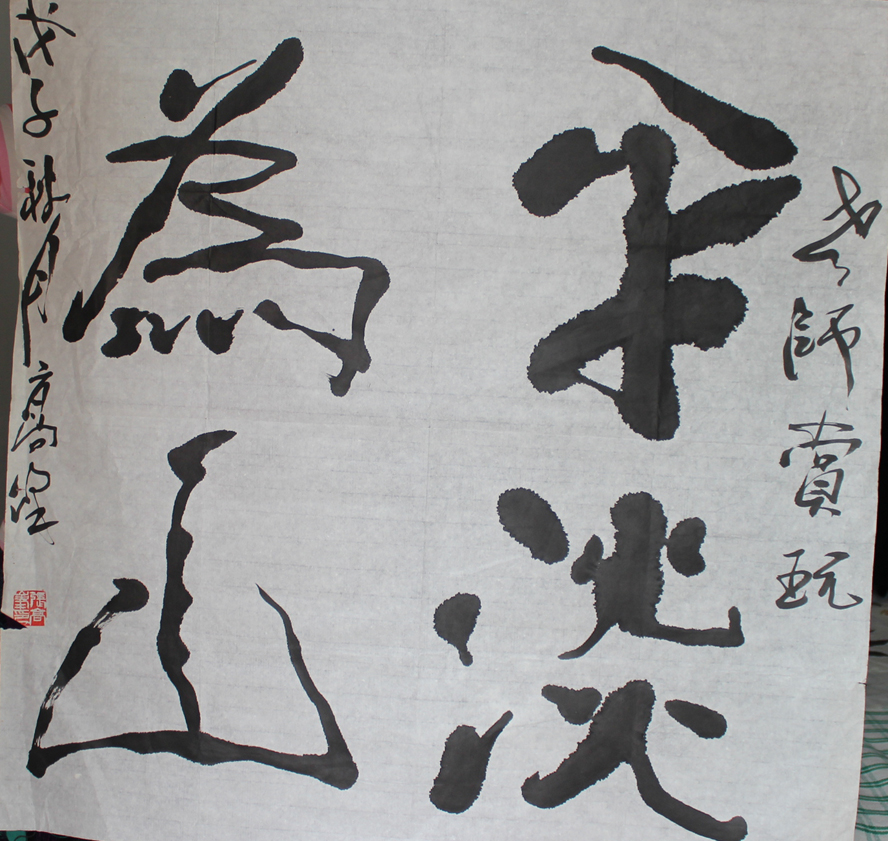 老師賞玩
平淡
為山
戊子秋月高